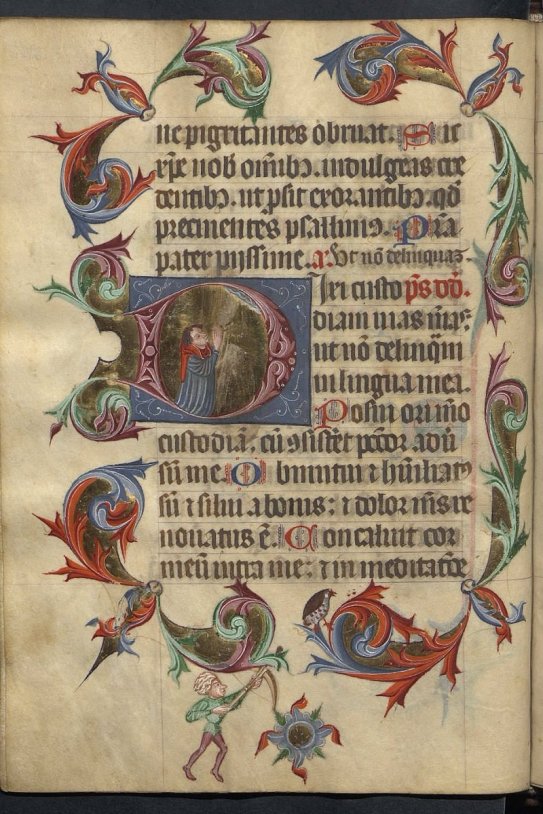 ne pigritantes obruat. Sic
xpe nob oīnibꝫ. indulgeas cre
dentibꝫ. ut ꝓsit exorantibꝫ. qd
precinentes psallimꝰ. Prā
pater pijssime. a. Vt nō delinquaꝫ.
Dixi custo p̄s dd.
diam uias mās:
ut nō delinqm
in lingua mea.
Posui ori mō
custodiā: cū ꝯsistet pccor. adu
sū me. Obmutui ⁊ humiliatꝰ
sū ⁊ silui a bonis: ⁊ dolor mꝰs re
nouatus ē. Concaluit cor
meū intra me: ⁊ in meditatōe